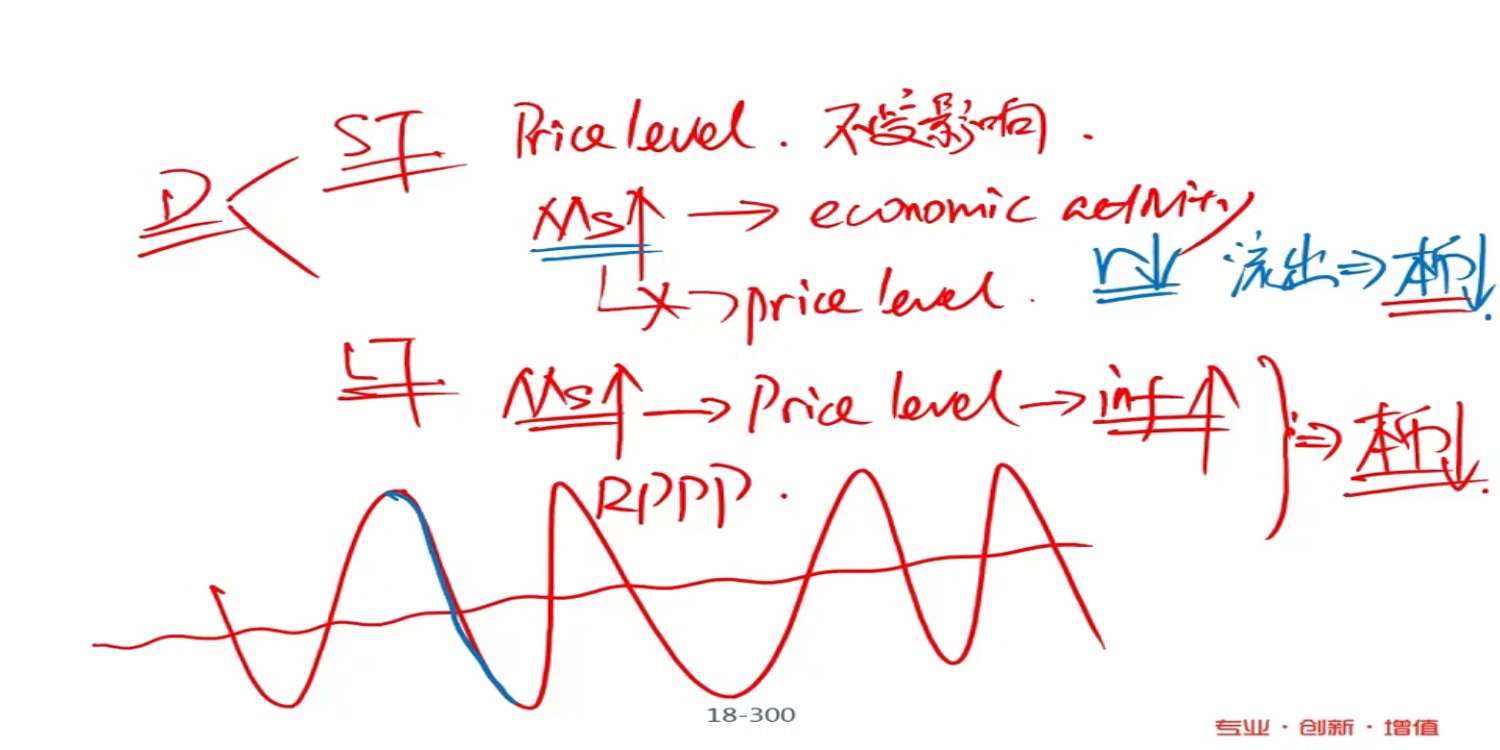 D ST Price level. 不受影响.
Ms↑ → economic activity
r↓ 流出⇒本币↓.
→ price level.
LT Ms↑ → Price level → inf↑ } ⇒ 本币↓.
RPPP.
18-300
专业·创新·增值